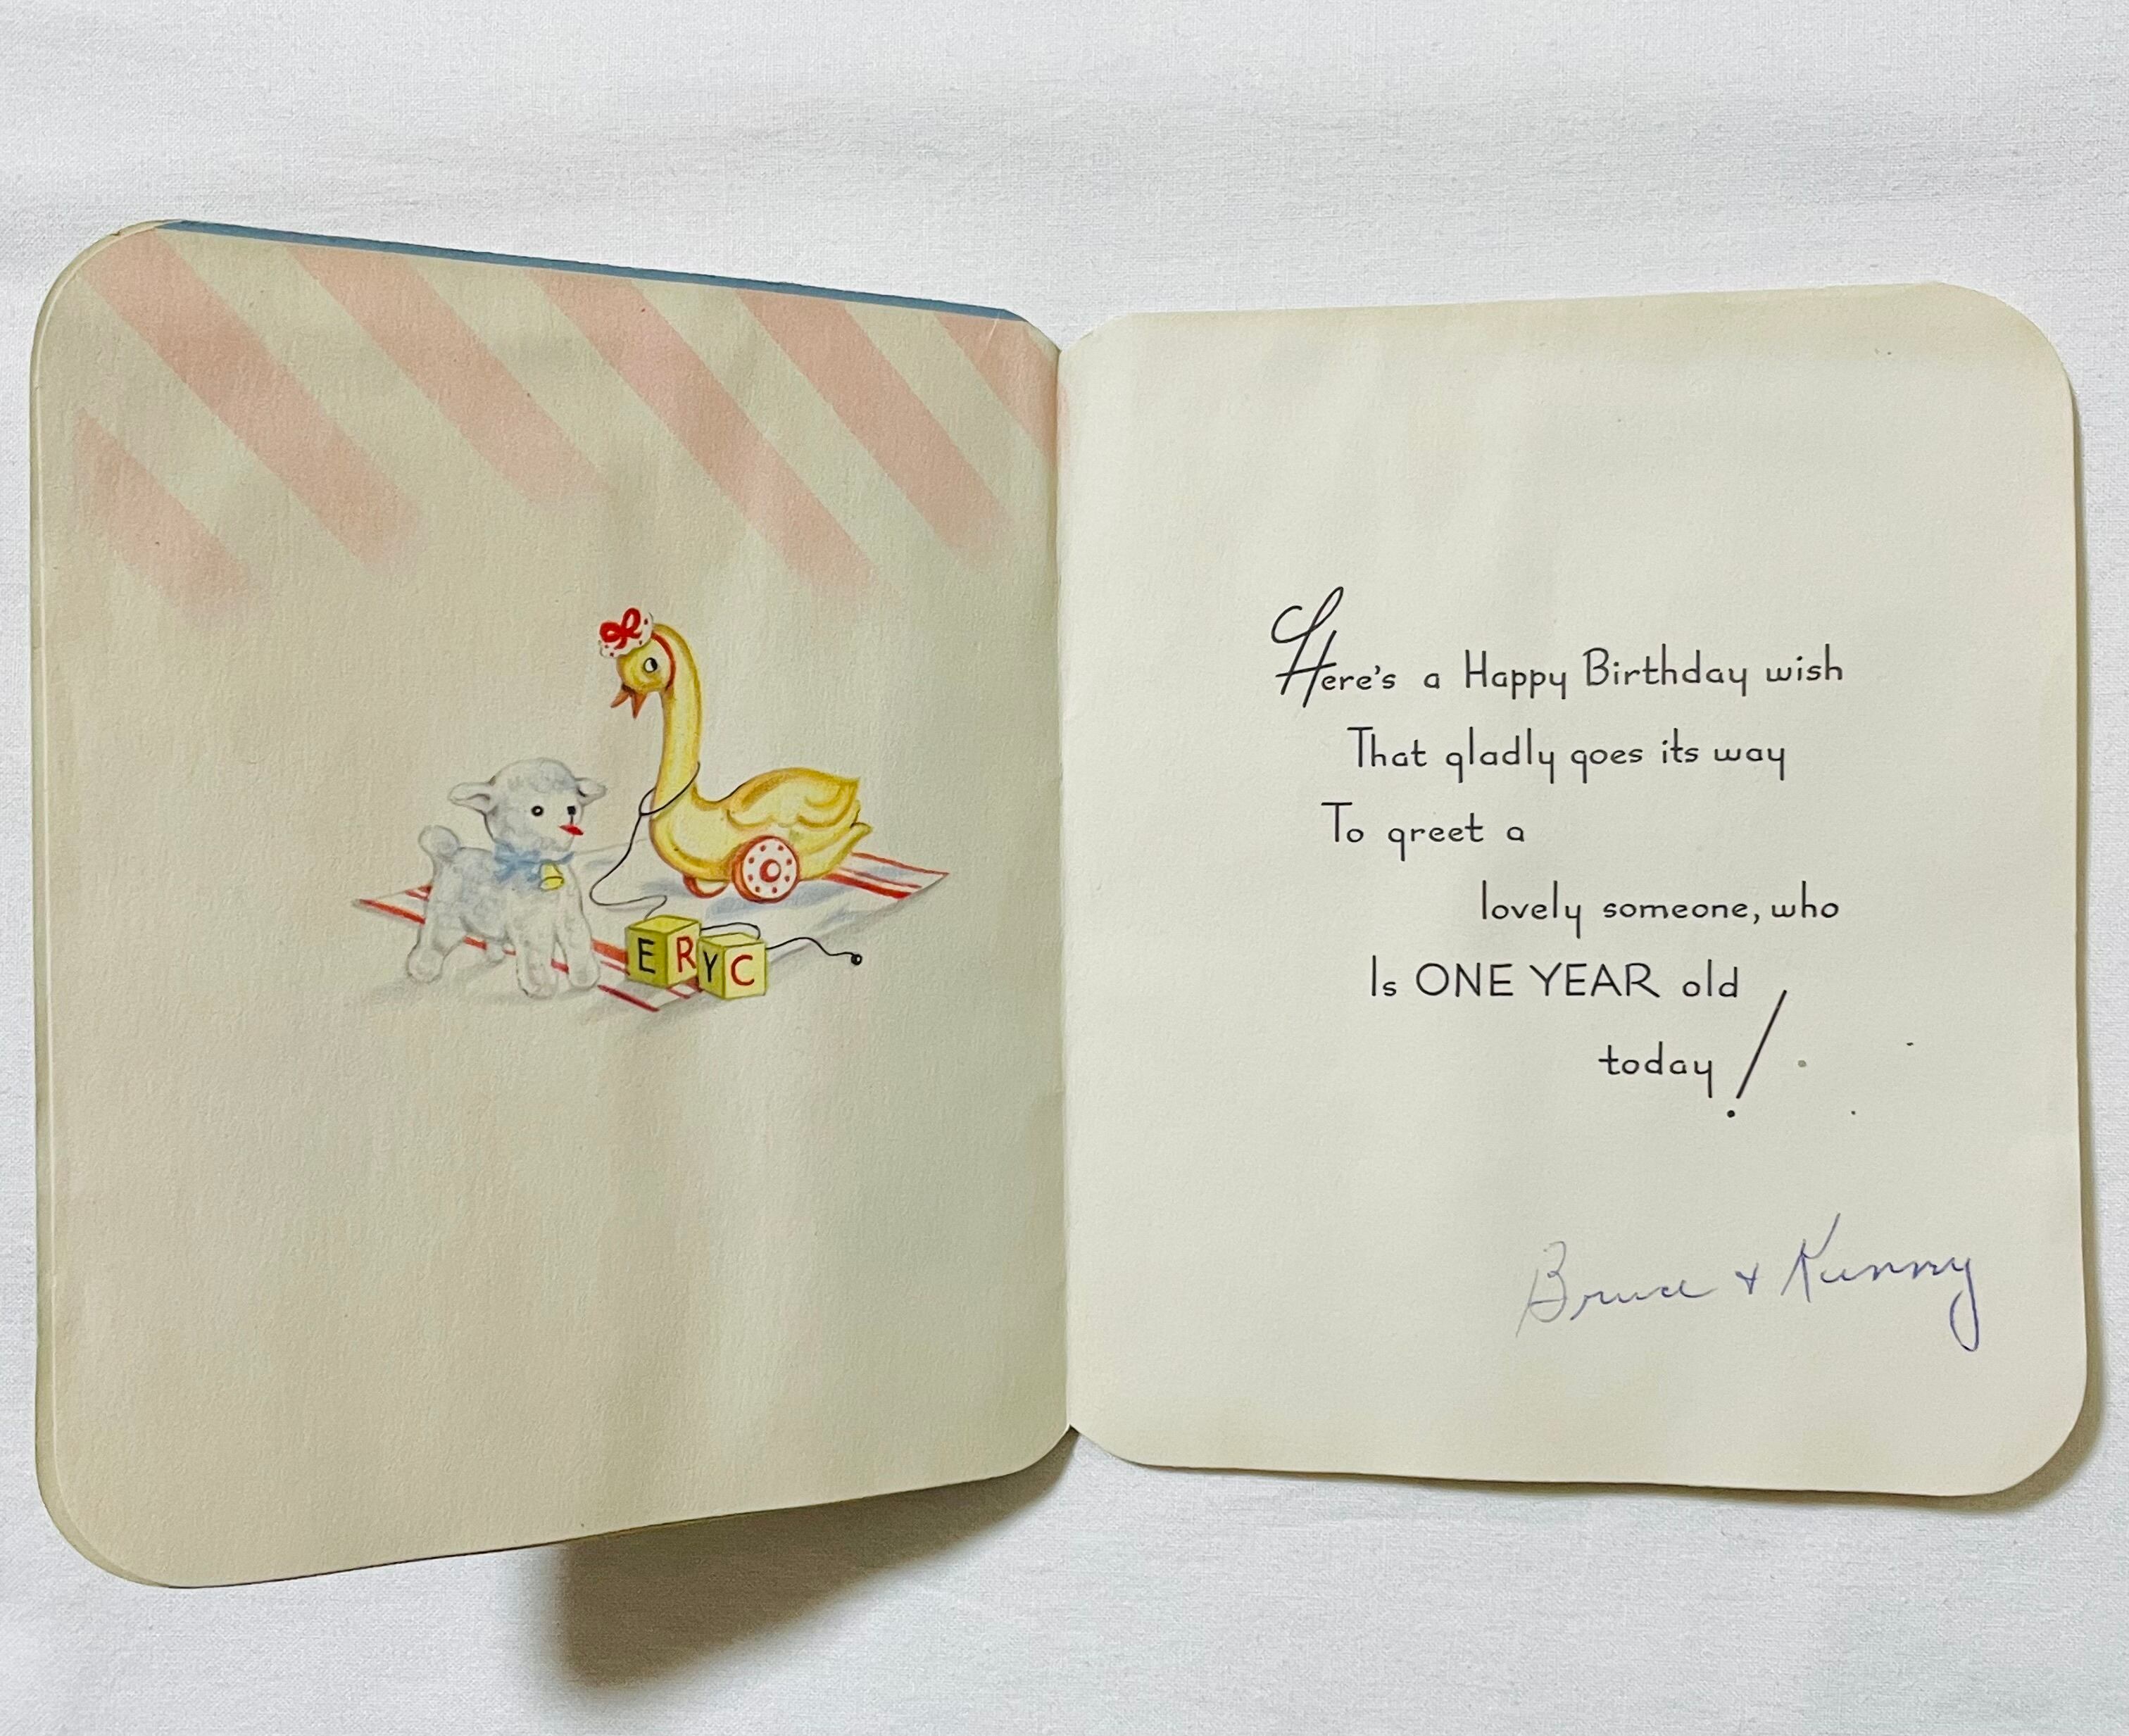 E R Y C
Here's a Happy Birthday wish
That gladly goes its way
To greet a
lovely someone, who
Is ONE YEAR old
today!
Bruce + Kunny